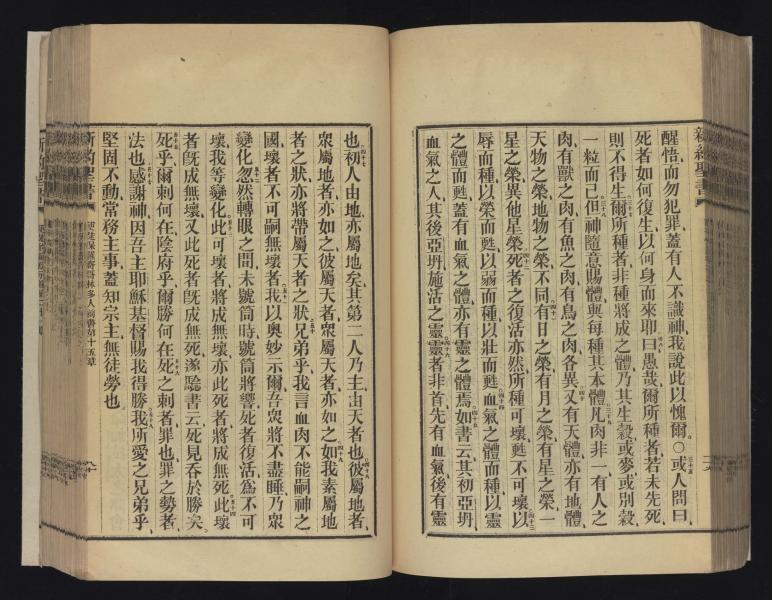 新約聖書
醒悟而勿犯罪蓋有人不識神我說此以愧爾○或人問曰
死者如何復生以何身而來耶曰愚哉爾所種者若未先死
則不得生爾所種者非種將成之體乃其生穀或麥或別穀
一粒而已但神隨意賜體與每種其本體凡肉非一有人之
肉有獸之肉有魚之肉有鳥之肉各異又有天體亦有地體
天物之榮地物之榮不同有日之榮有月之榮有星之榮一
星之榮異他星榮死者之復活亦然所種可壞甦不可壞以
辱而種以榮而甦以弱而種以壯而甦血氣之體而種以靈
之體而甦蓋有血氣之體亦有靈之體焉如書云其初亞坍
血氣之人其後亞坍施活之靈靈者非首先有血氣後有靈
也初人由地亦屬地矣其第二人乃主由天者也彼屬地者
眾屬地者亦如之彼屬天者眾屬天者亦如之如我素屬地
者之狀亦將帶屬天者之狀兄弟乎我言血肉不能嗣神之
國壞者不可嗣無壞者我以奧妙示爾吾眾將不盡睡乃眾
變化忽然轉眼之間末號筒時號筒將響死者復活為不可
壞我等變化此可壞者將成無壞亦此死者將成無死此壞
者既成無壞又此死者既成無死遂騐書云死見吞於勝矣
死乎爾刺何在陰府乎爾勝何在死之刺者罪也罪之勢者
法也感謝神因吾主耶穌基督賜我得勝我所愛之兄弟乎
堅固不動常務主事蓋知宗主無徒勞也
新約聖書
使徒保羅寄哥林多人前書第十五章